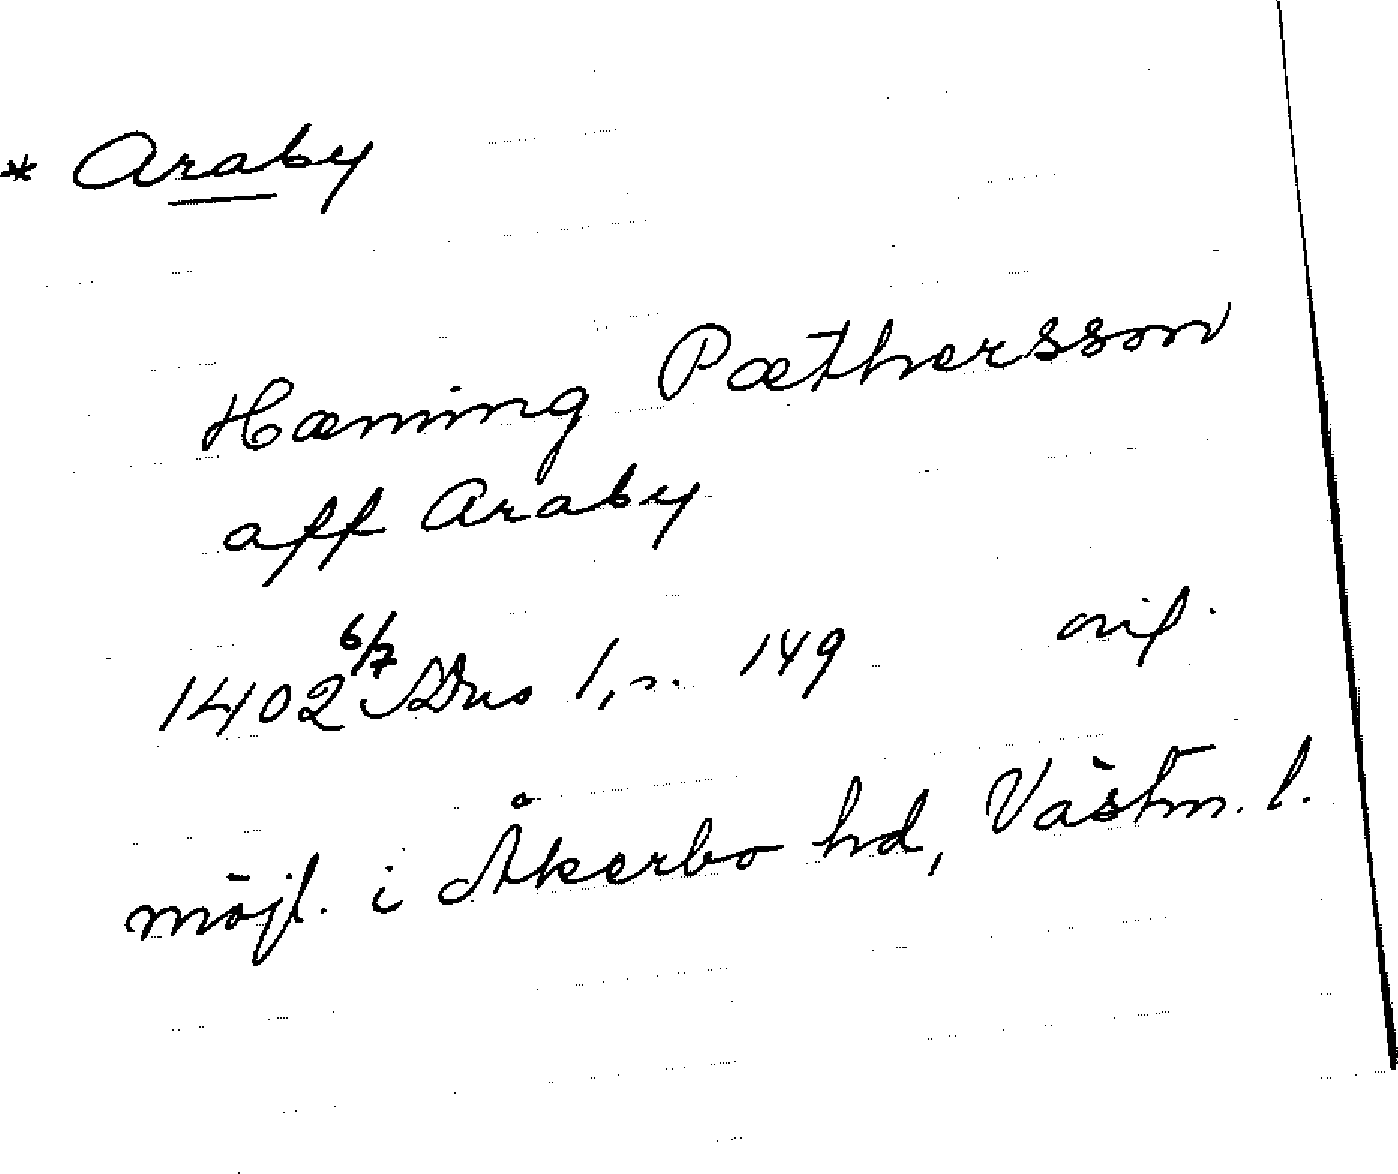 * Araby
Hæming Pæthersson
aff Araby
1402 6/7 SDns 1, s. 149 orig.
möjl. i Åkerbo hd, Västm. l.